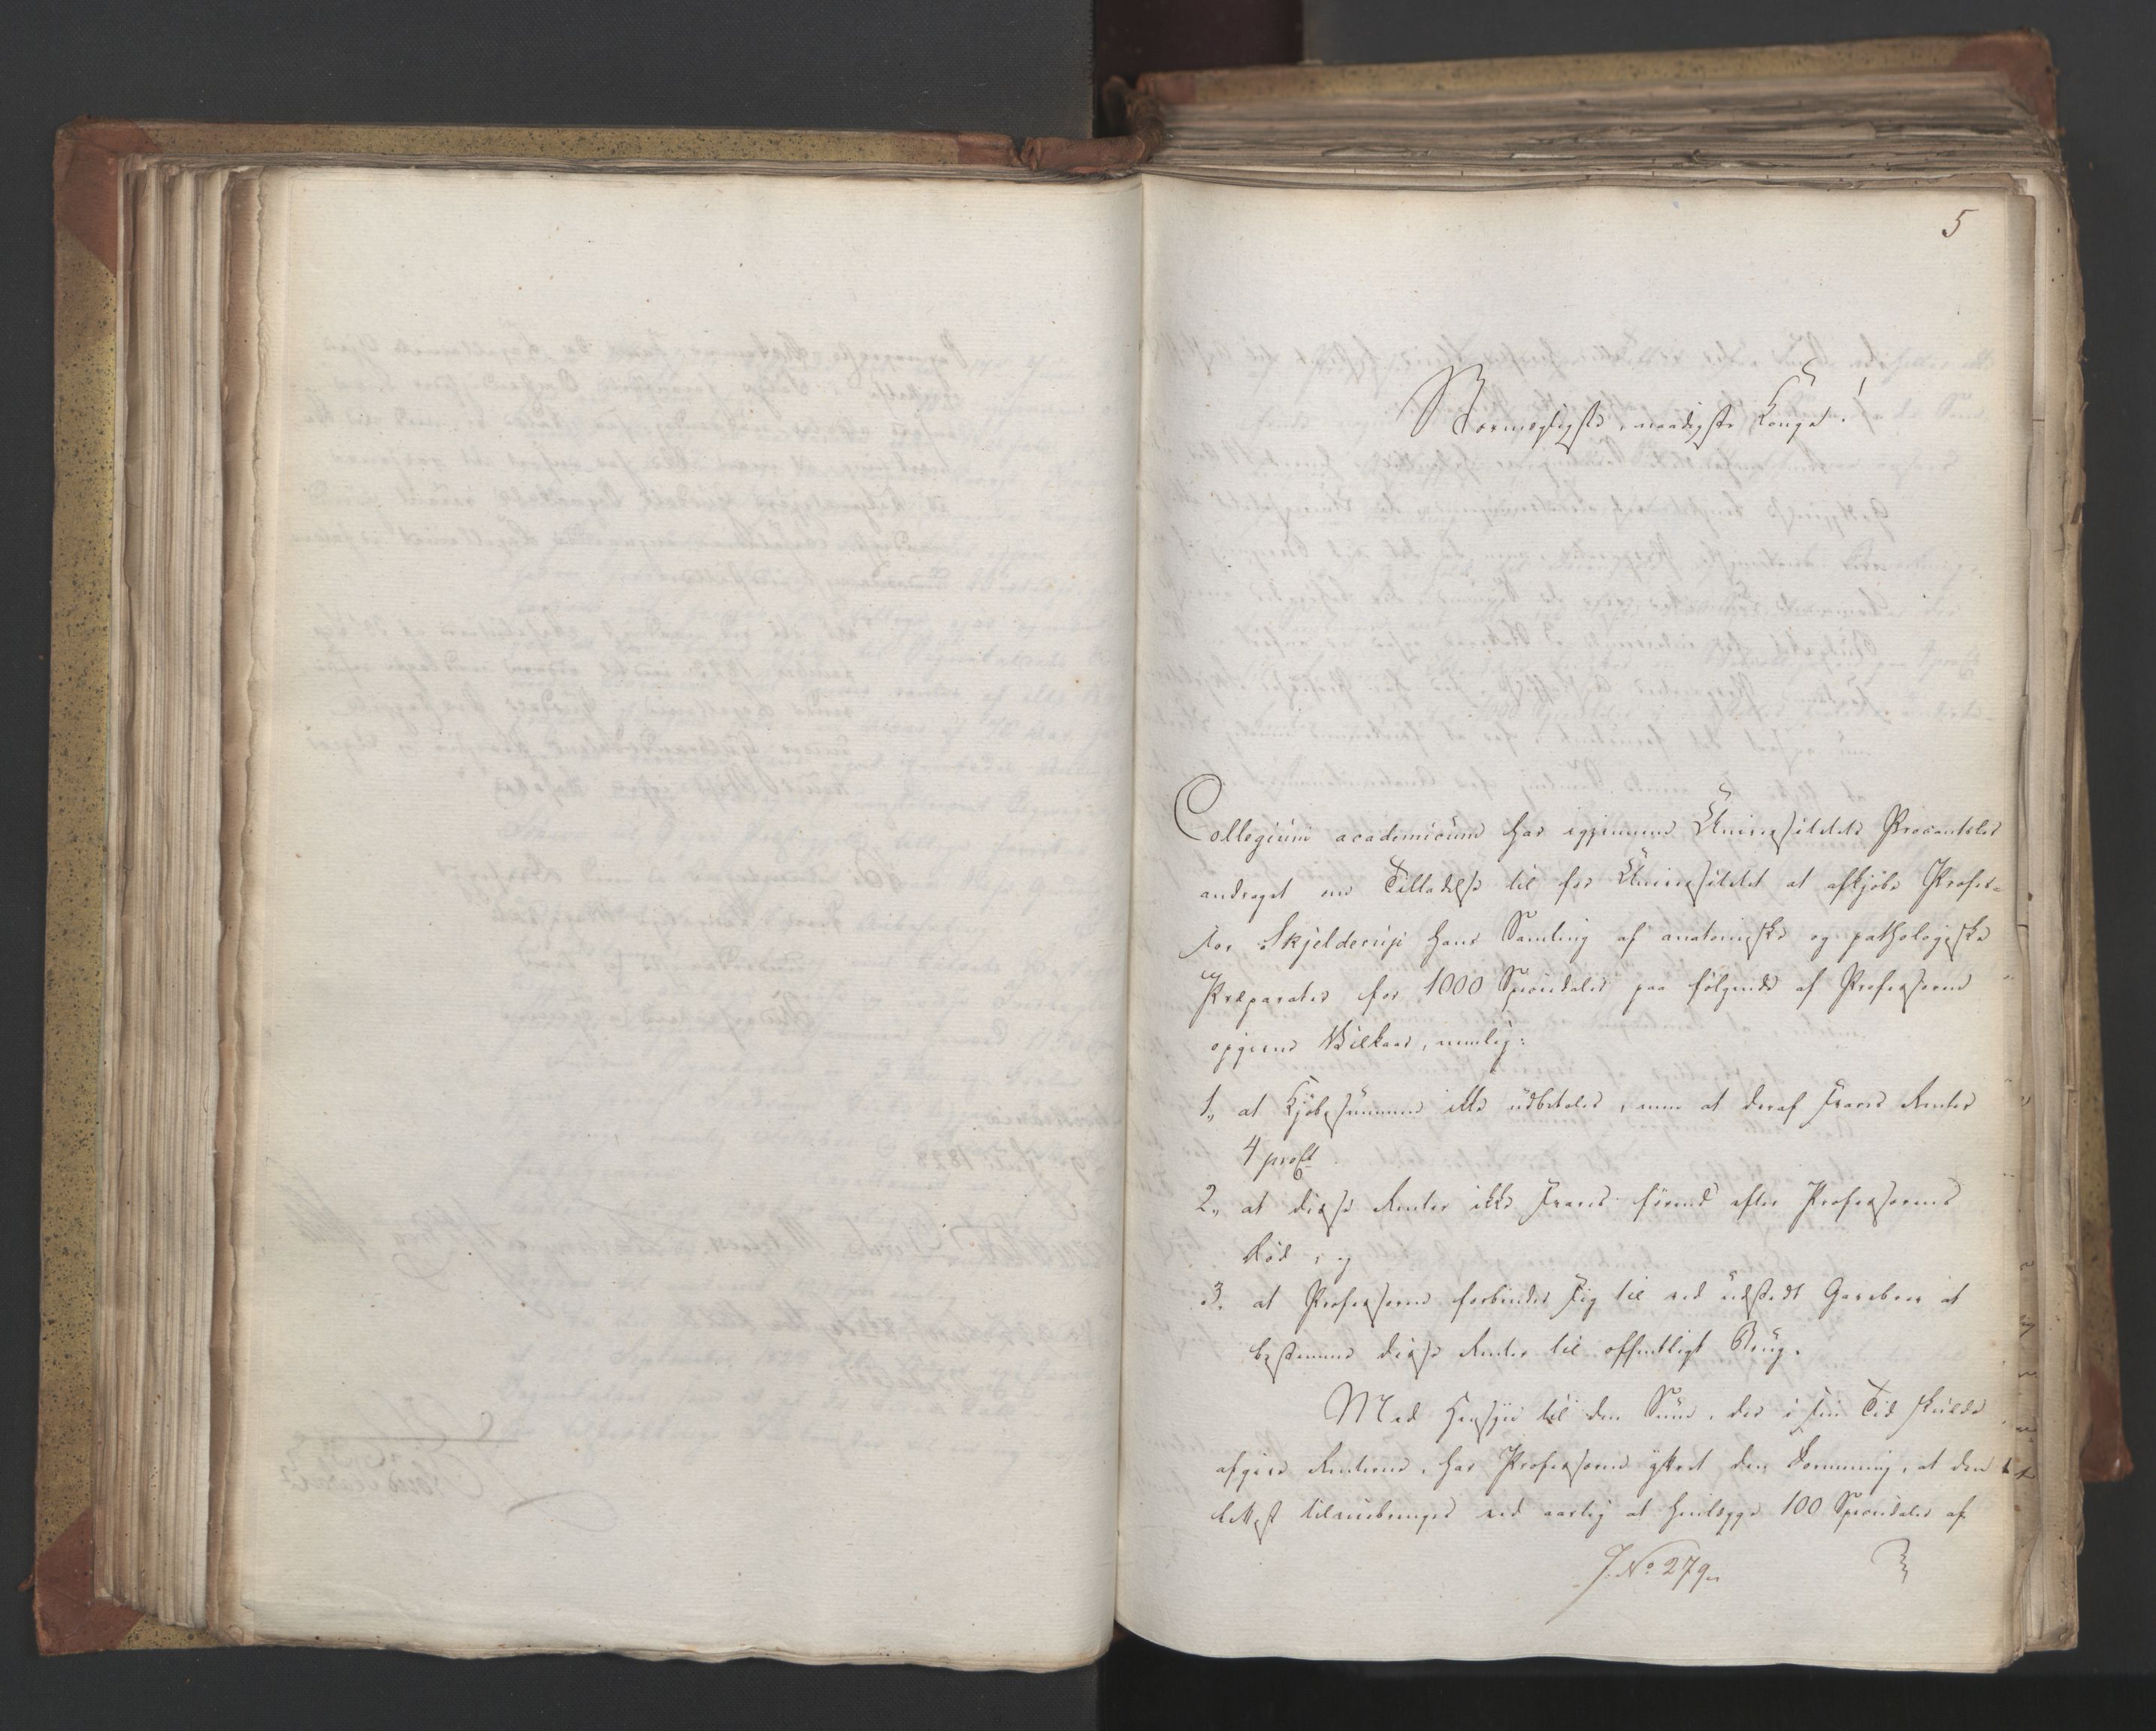 5
Stormægtigste, naadigste Konge!
Collegium academicum har igjennem Universitetets Procantsler
andraget om Tilladelse til for Universitetet at afkjøbe Profes-
sor Skjelderup hans Samling af anatomiske og pathologiske
Præparater for 1000 Speciedaler paa følgende af Professoren
opgivne Vilkaar, nemlig:
1, at Kjøbesummen ikke udbetales, men at deraf svares Renter
4 proCt
2, at disse Renter ikke svares førend efter Professorens
Død, og
3. at Professoren forbinder sig til ved udstedt Gavebrev at
bestemme disse Renter til offentligt Brug.
Med Hensyn til den Sum, der i sin Tid skulde
afgive Renterne, har Professoren yttret den Formening, at den
lettest tilveiebringes ved aarlig at henlægge 100 Speciedaler af
J. No 279